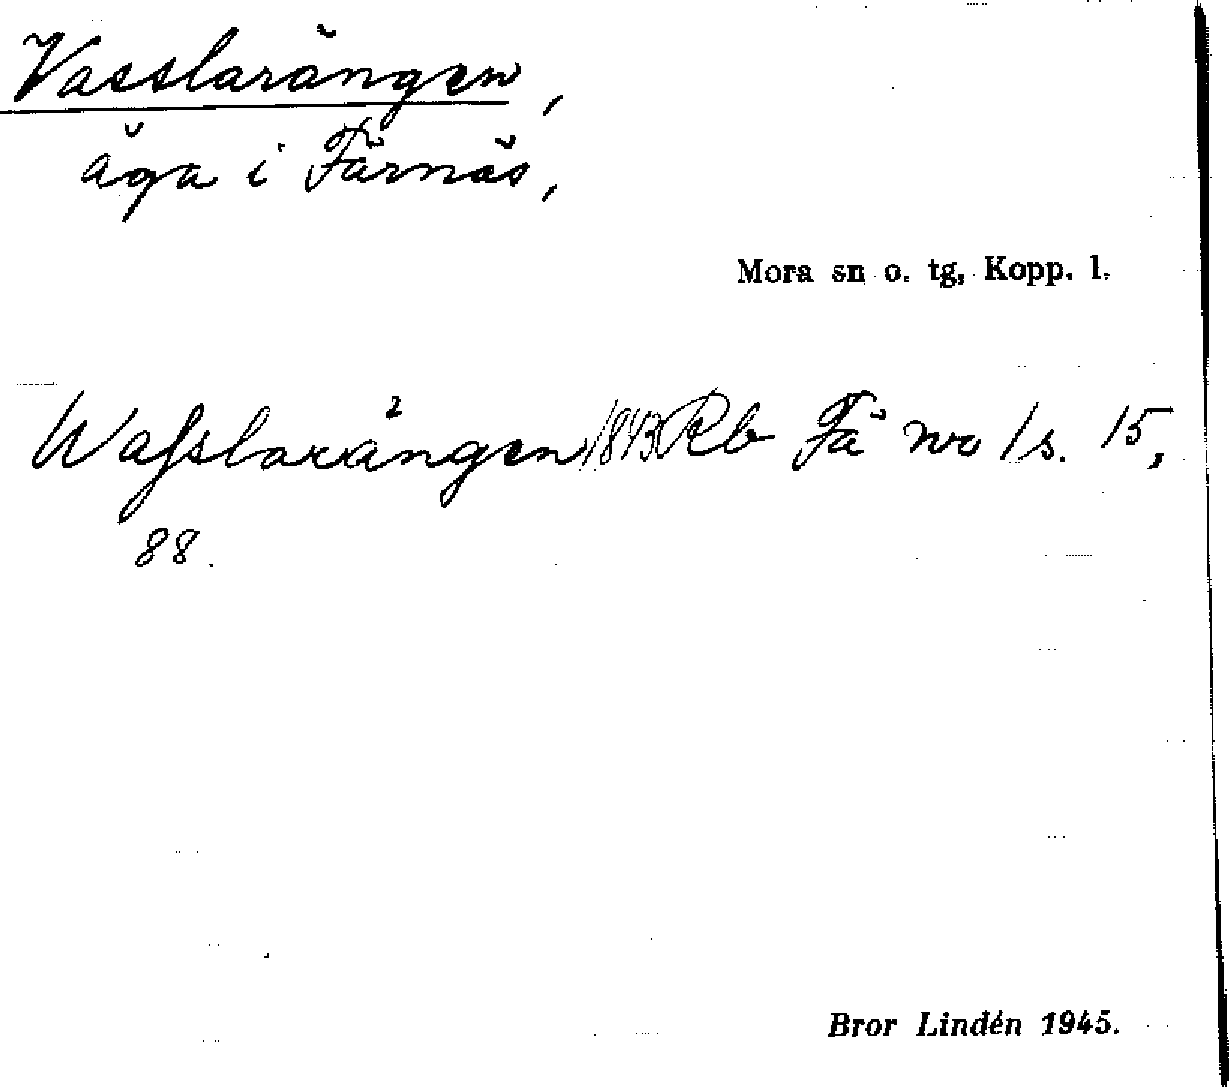 Vasslarängen,
äga i Färnäs,
Mora sn o. tg, Kopp. l.
Wasslarängen 1843 Rb Fä nro 1 s. 15,
88.
Bror Lindén 1945.